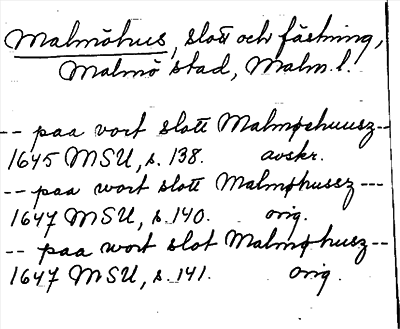 Malmöhus, slott och fästning,
Malmö stad, Malm.l.
-- paa vort slott Malmøehuusz--
1645 MSU, s. 138. avskr.
-- paa wort slott Malmøhussz ---
1647 MSU, s. 140. orig.
-- paa wort slot Malmøhusz --
1647 MSU, s. 141. orig.